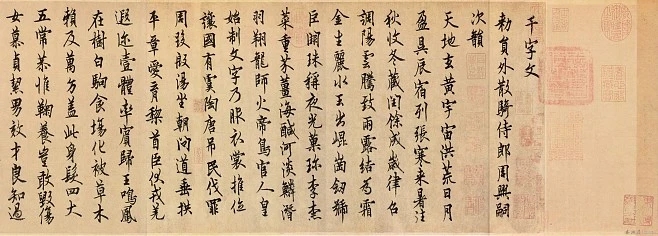 千字文
勑員外散騎侍郎周興嗣
次韻
天地玄黃宇宙洪荒日月
盈昃辰宿列張寒来暑往
秋收冬藏閏餘成歲律召
調陽雲騰致雨露結為霜
金生麗水玉出崐崗劒號
巨闕珠稱夜光菓珎李柰
菜重芥薑海醎河淡鱗潛
羽翔龍師火帝鳥官人皇
始制文字乃服衣裳推位
讓國有虞陶唐弔民伐罪
周發殷湯坐朝問道垂拱
平章愛育黎首臣伏戎羌
遐迩壹體率賓歸王鳴鳳
在樹白駒食場化被草木
賴及萬方盖此身髮四大
五常恭惟鞠養豈敢毀傷
女慕貞絜男效才良知過